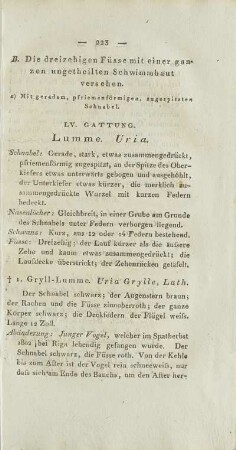 — 223 —
B. Die dreizehigen Füsse mit einer gan-
zen ungetheilten Schwimmhaut
versehen.
a) Mit geradem, pfriemenförmigen, zugespitzten
Schnabel.
LV. GATTUNG.
Lumme. Uria.
Schnabel: Gerade, stark, etwas zusammengedrückt,
pfriemenförmig zugespitzt, an der Spitze des Ober-
kiefers etwas unterwärts gebogen und ausgehöhlt,
der Unterkiefer etwas kürzer, die merklich zu-
sammengedrückte Wurzel mit kurzen Federn
bedeckt.
Nasenlöcher: Gleichbreit, in einer Grube am Grunde
des Schnabels unter Federn verborgen liegend.
Schwanz: Kurz, aus 12 oder 16 Federn bestehend.
Füsse: Dreizehig; der Lauf kürzer als die äussere
Zehe und kaum etwas zusammengedrückt; die
Laufdecke überstrickt; der Zehenrücken getäfelt.
† 1. Gryll-Lumme. Uria Grylle, Lath.
Der Schnabel schwarz; der Augenstern braun;
der Rachen und die Füsse zinnoberroth; der ganze
Körper schwarz; die Deckfedern der Flügel weiss.
Länge 12 Zoll.
Abänderung: Junger Vogel, welcher im Spatherbst
1802 bei Riga lebendig gefangen wurde. Der
Schnabel schwarz, die Füsse roth. Von der Kehle
bis zum After ist der Vogel rein schneeweiss, nur
dass sich am Ende des Bauchs, um den After her-